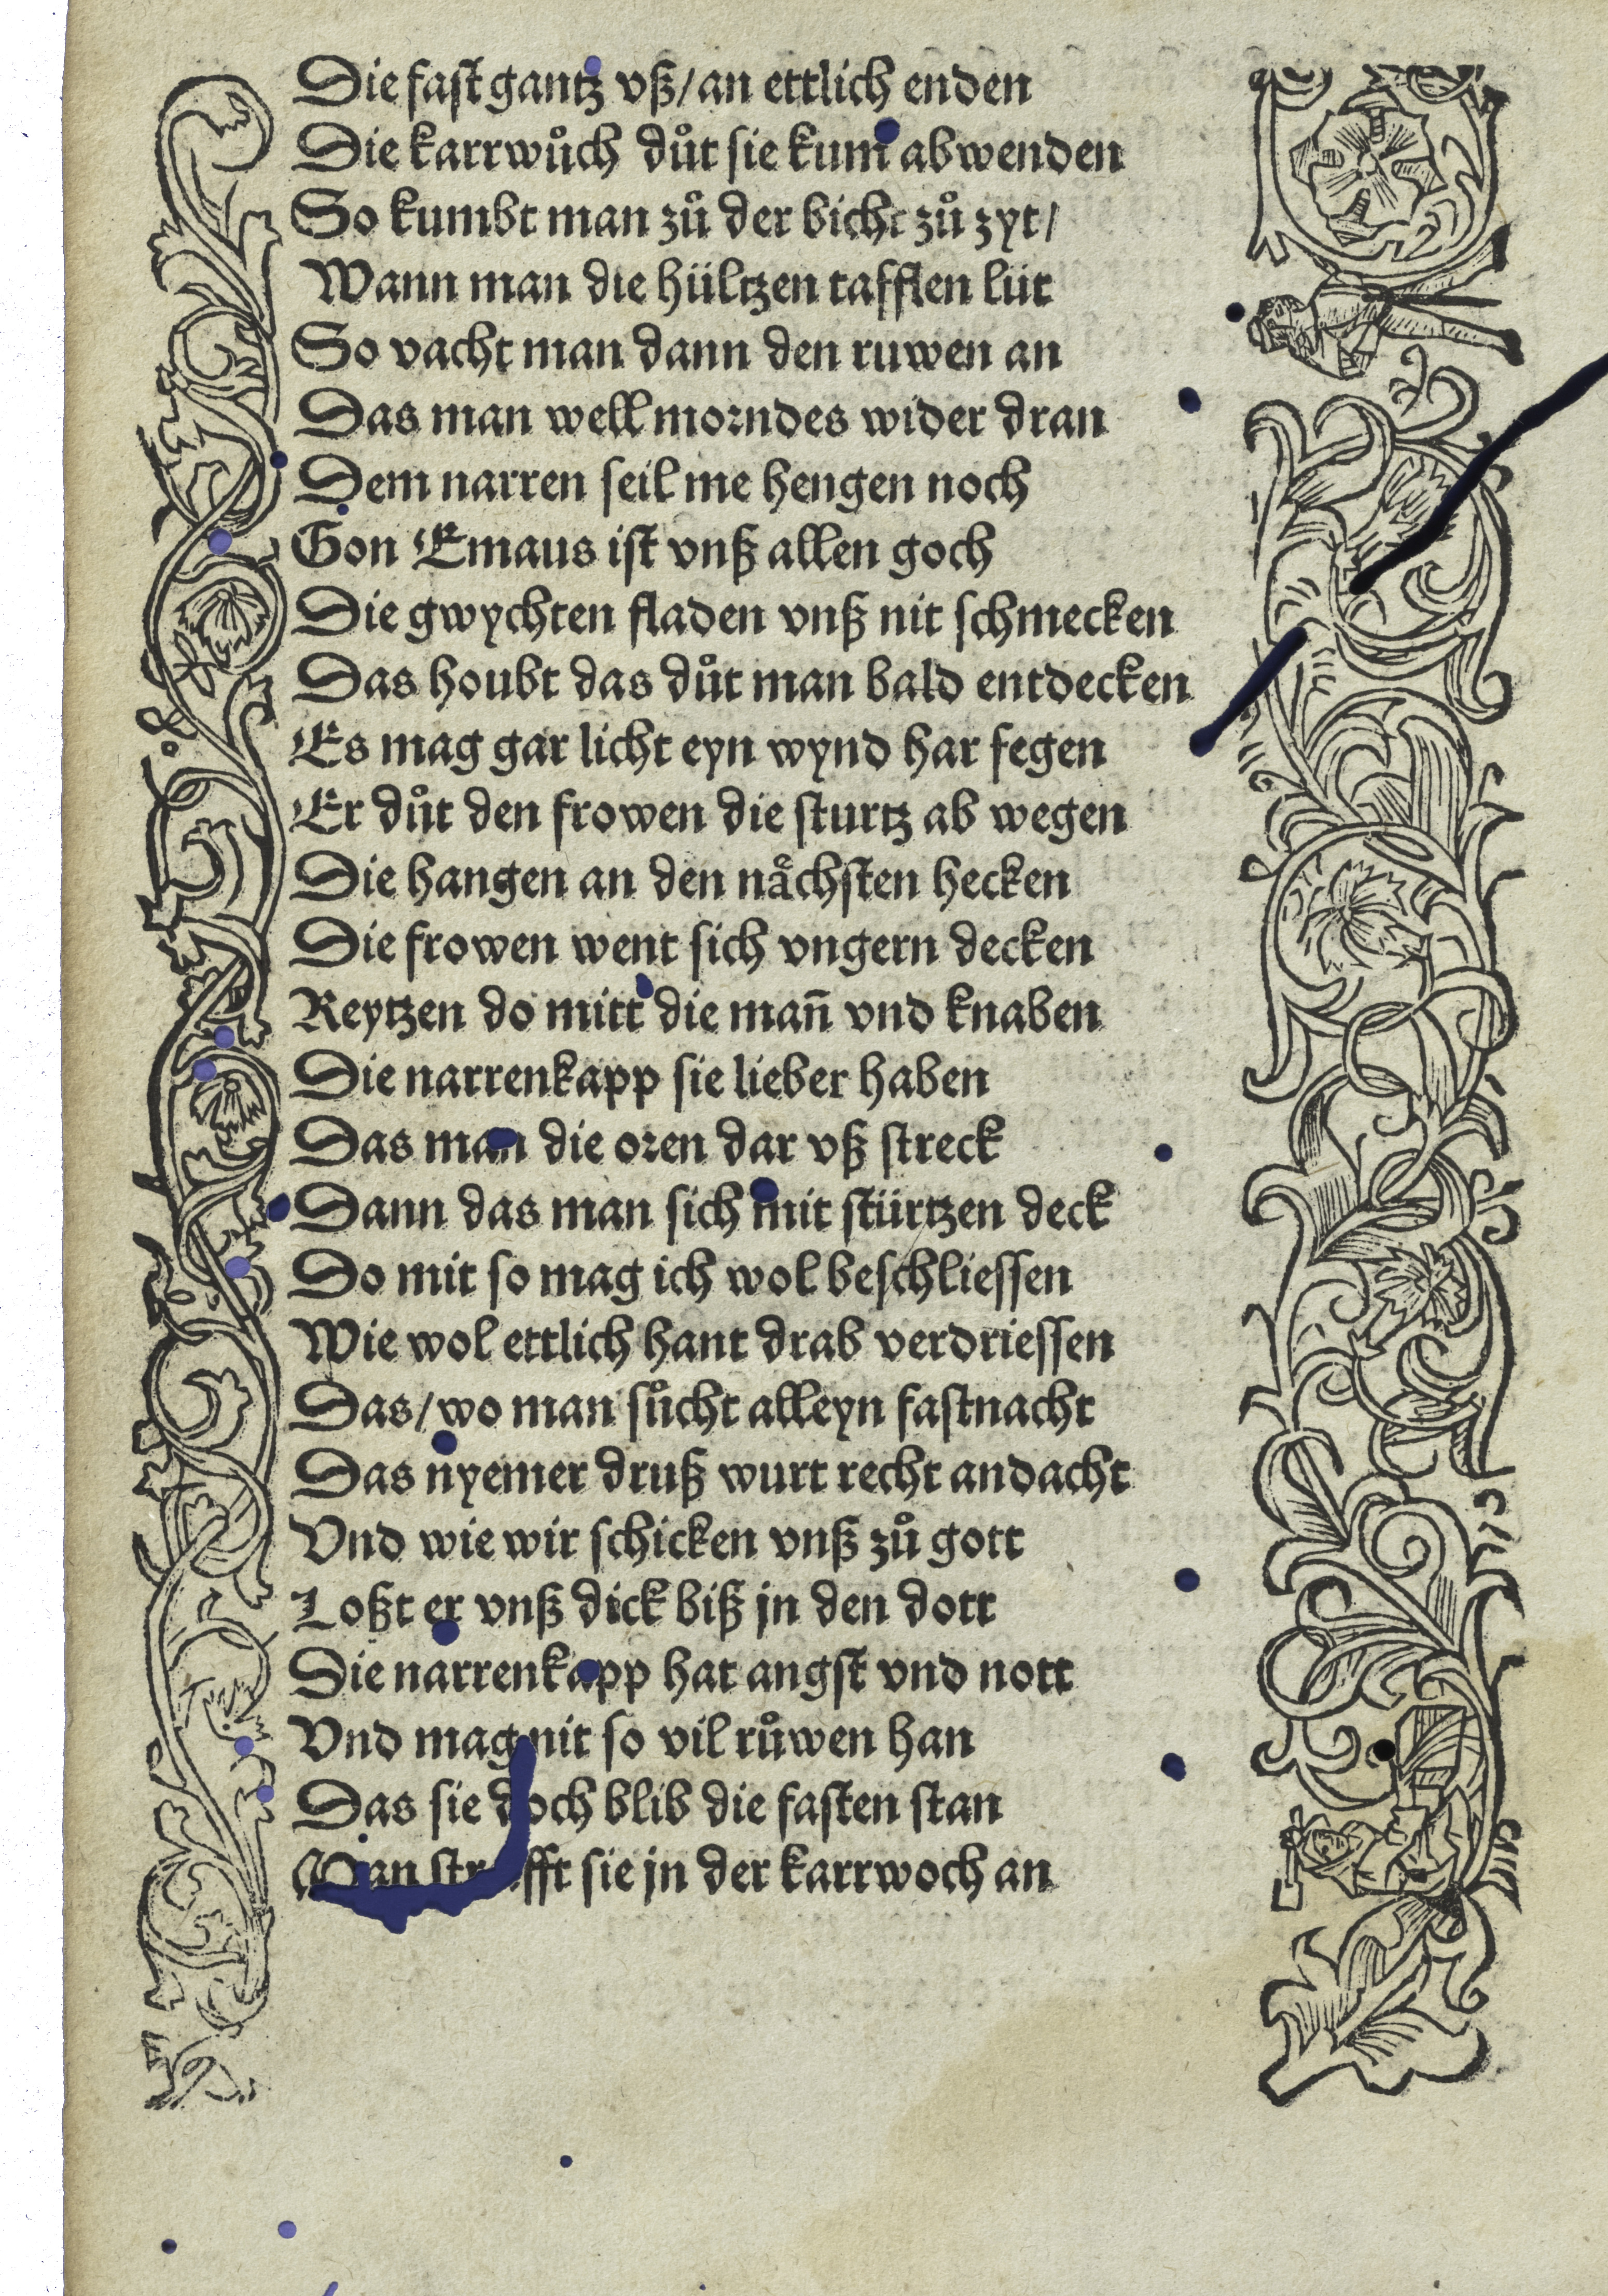 Die fast gantz vß/an ettlich enden
Die karrwuͦch duͦt sie kum abwenden
So kumbt man zuͦ der bicht zuͦ zyt/
Wann man die hültzen tafflen lüt
So vacht man dann den ruwen an
Das man well morndes wider dran
Dem narren seil me hengen noch
Gon Emaus ist vnß allen goch
Die gwychten fladen vnß nit schmecken
Das houbt das duͦt man bald entdecken
Es mag gar licht eyn wynd har fegen
Er duͦt den frowen die sturtz ab wegen
Die hangen an den naͤchsten hecken
Die frowen went sich vngern decken
Reytzen do mitt die man̄ vnd knaben
Die narrenkapp sie lieber haben
Das man die oren dar vß streck
Dann das man sich mit stürtzen deck
Do mit so mag ich wol beschliessen
Wie wol ettlich hant drab verdriessen
Das/wo man suͦcht alleyn fastnacht
Das nyemer druß wurt recht andacht
Vnd wie wir schicken vnß zuͦ gott
Loßt er vnß dick biß jn den dott
Die narrenkapp hat angst vnd nott
Vnd mag nit so vil ruͦwen han
Das sie doch blib die fasten stan
Man strofft sie jn der karrwoch an